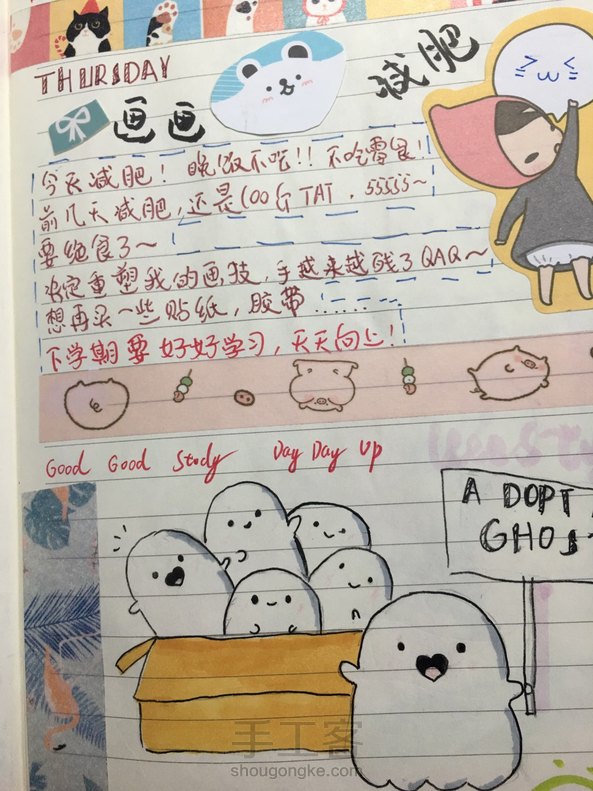 THURSDAY
画画
减肥
≥ω≤
今天减肥！晚饭不吃！！不吃零食！
前几天减肥，还是100斤TAT，55555~
要绝食了~
决定重塑我的画技，手越来越残了QAQ~
想再买一些贴纸，胶带……
下学期要好好学习，天天向上！
Good Good Study Day Day Up
ADOPT
GHOS
手工客
shougongke.com